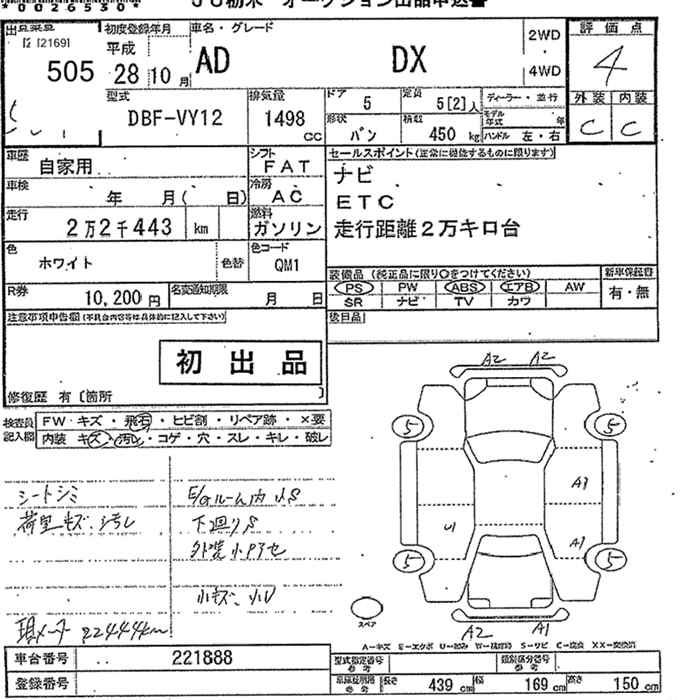 *0026530*
JU栃木 オークション出品申込書
505
初度登録年月
平成
28 10 月
車名・グレード
AD DX
2WD
4WD
評価点
4
外装 内装
C C
型式
DBF-VY12
排気量
1498 CC
ドア
5
定員
5[2]人
形状
バン
積載
450 kg
ディーラー・並行
モデル年式 年
ハンドル 左・右
車歴
自家用
シフト
FAT
車検
年 月( 日)
冷房
AC
走行
2万2千443 km
燃料
ガソリン
色
ホワイト
色替
色コード
QM1
R券
10,200 円
名変通知期限
月 日
セールスポイント(正常に機能するものに限ります)
ナビ
ETC
走行距離2万キロ台
装備品(純正品に限り○をつけてください)
PS PW ABS エアB AW
SR ナビ TV カワ
新車保証書
有・無
後日品
注意事項申告欄(不具合内容等は具体的に記入して下さい)
初出品
修復歴 有〔箇所 〕
検査員記入欄
FW キズ・飛石・ヒビ割・リペア跡・×要
内装 キズ・汚れ・コゲ・穴・スレ・キレ・破レ
シートシミ
荷室キズ、汚レ
E/Gルーム内小S
下廻りS
外装小P汚セ
小キズ、小U
現メーター 22444km
A2 A2
5 5
A1
U1
A1
5 5
A2 A1
スペア
A-キズ E-エクボ U-凹み W-補修跡 S-サビ C-腐食 XX-交換済
車台番号
221888
登録番号
型式指定番号
参考
類別区分番号
参考
車検証明細
参考
長さ 439 cm
幅 169 cm
高さ 150 cm